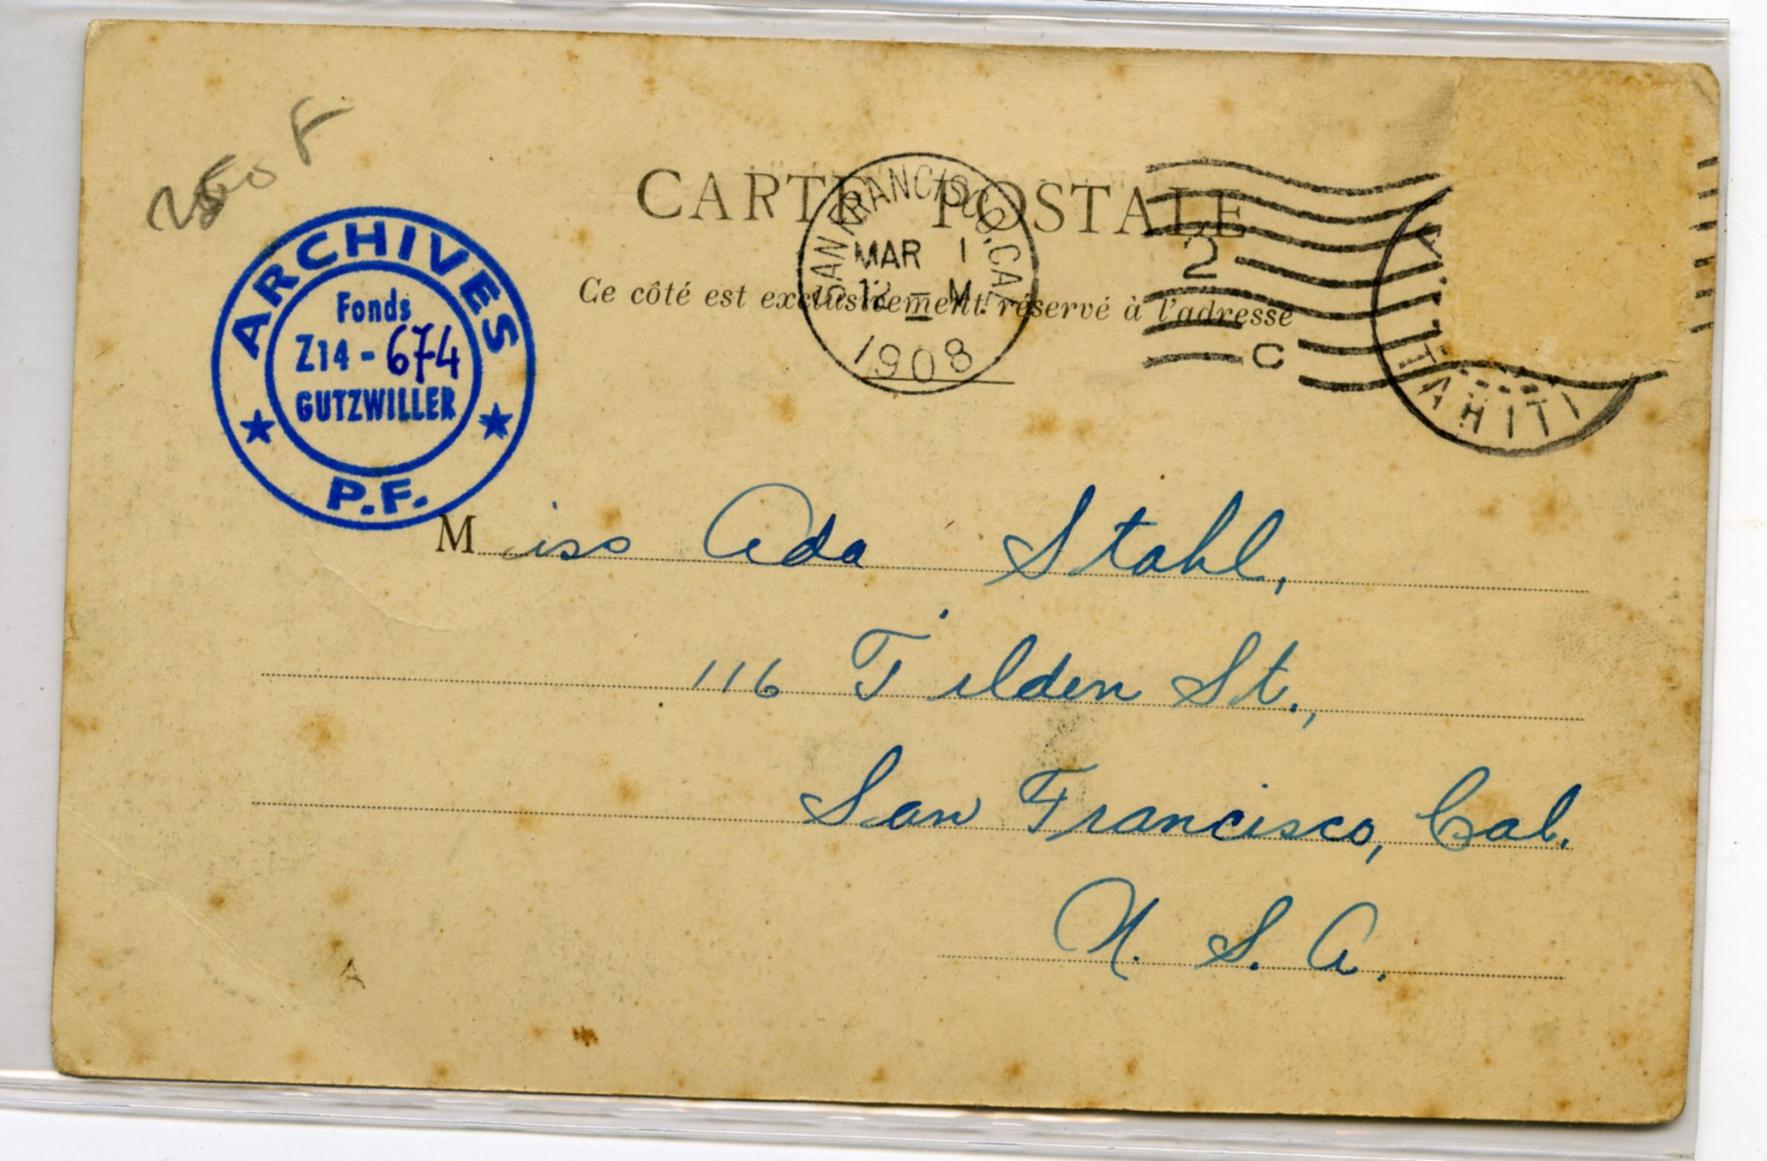 250 F
CARTE POSTALE
Ce côté est exclusivement réservé à l'adresse
SAN FRANCISCO, CAL.
MAR 1
12 - M.
1908
2
C
TAHITI
ARCHIVES
Fonds
Z14 - 674
GUTZWILLER
P.F.
Miss Ada Stahl,
116 Tilden St.,
San Francisco, Cal.
U. S. A.